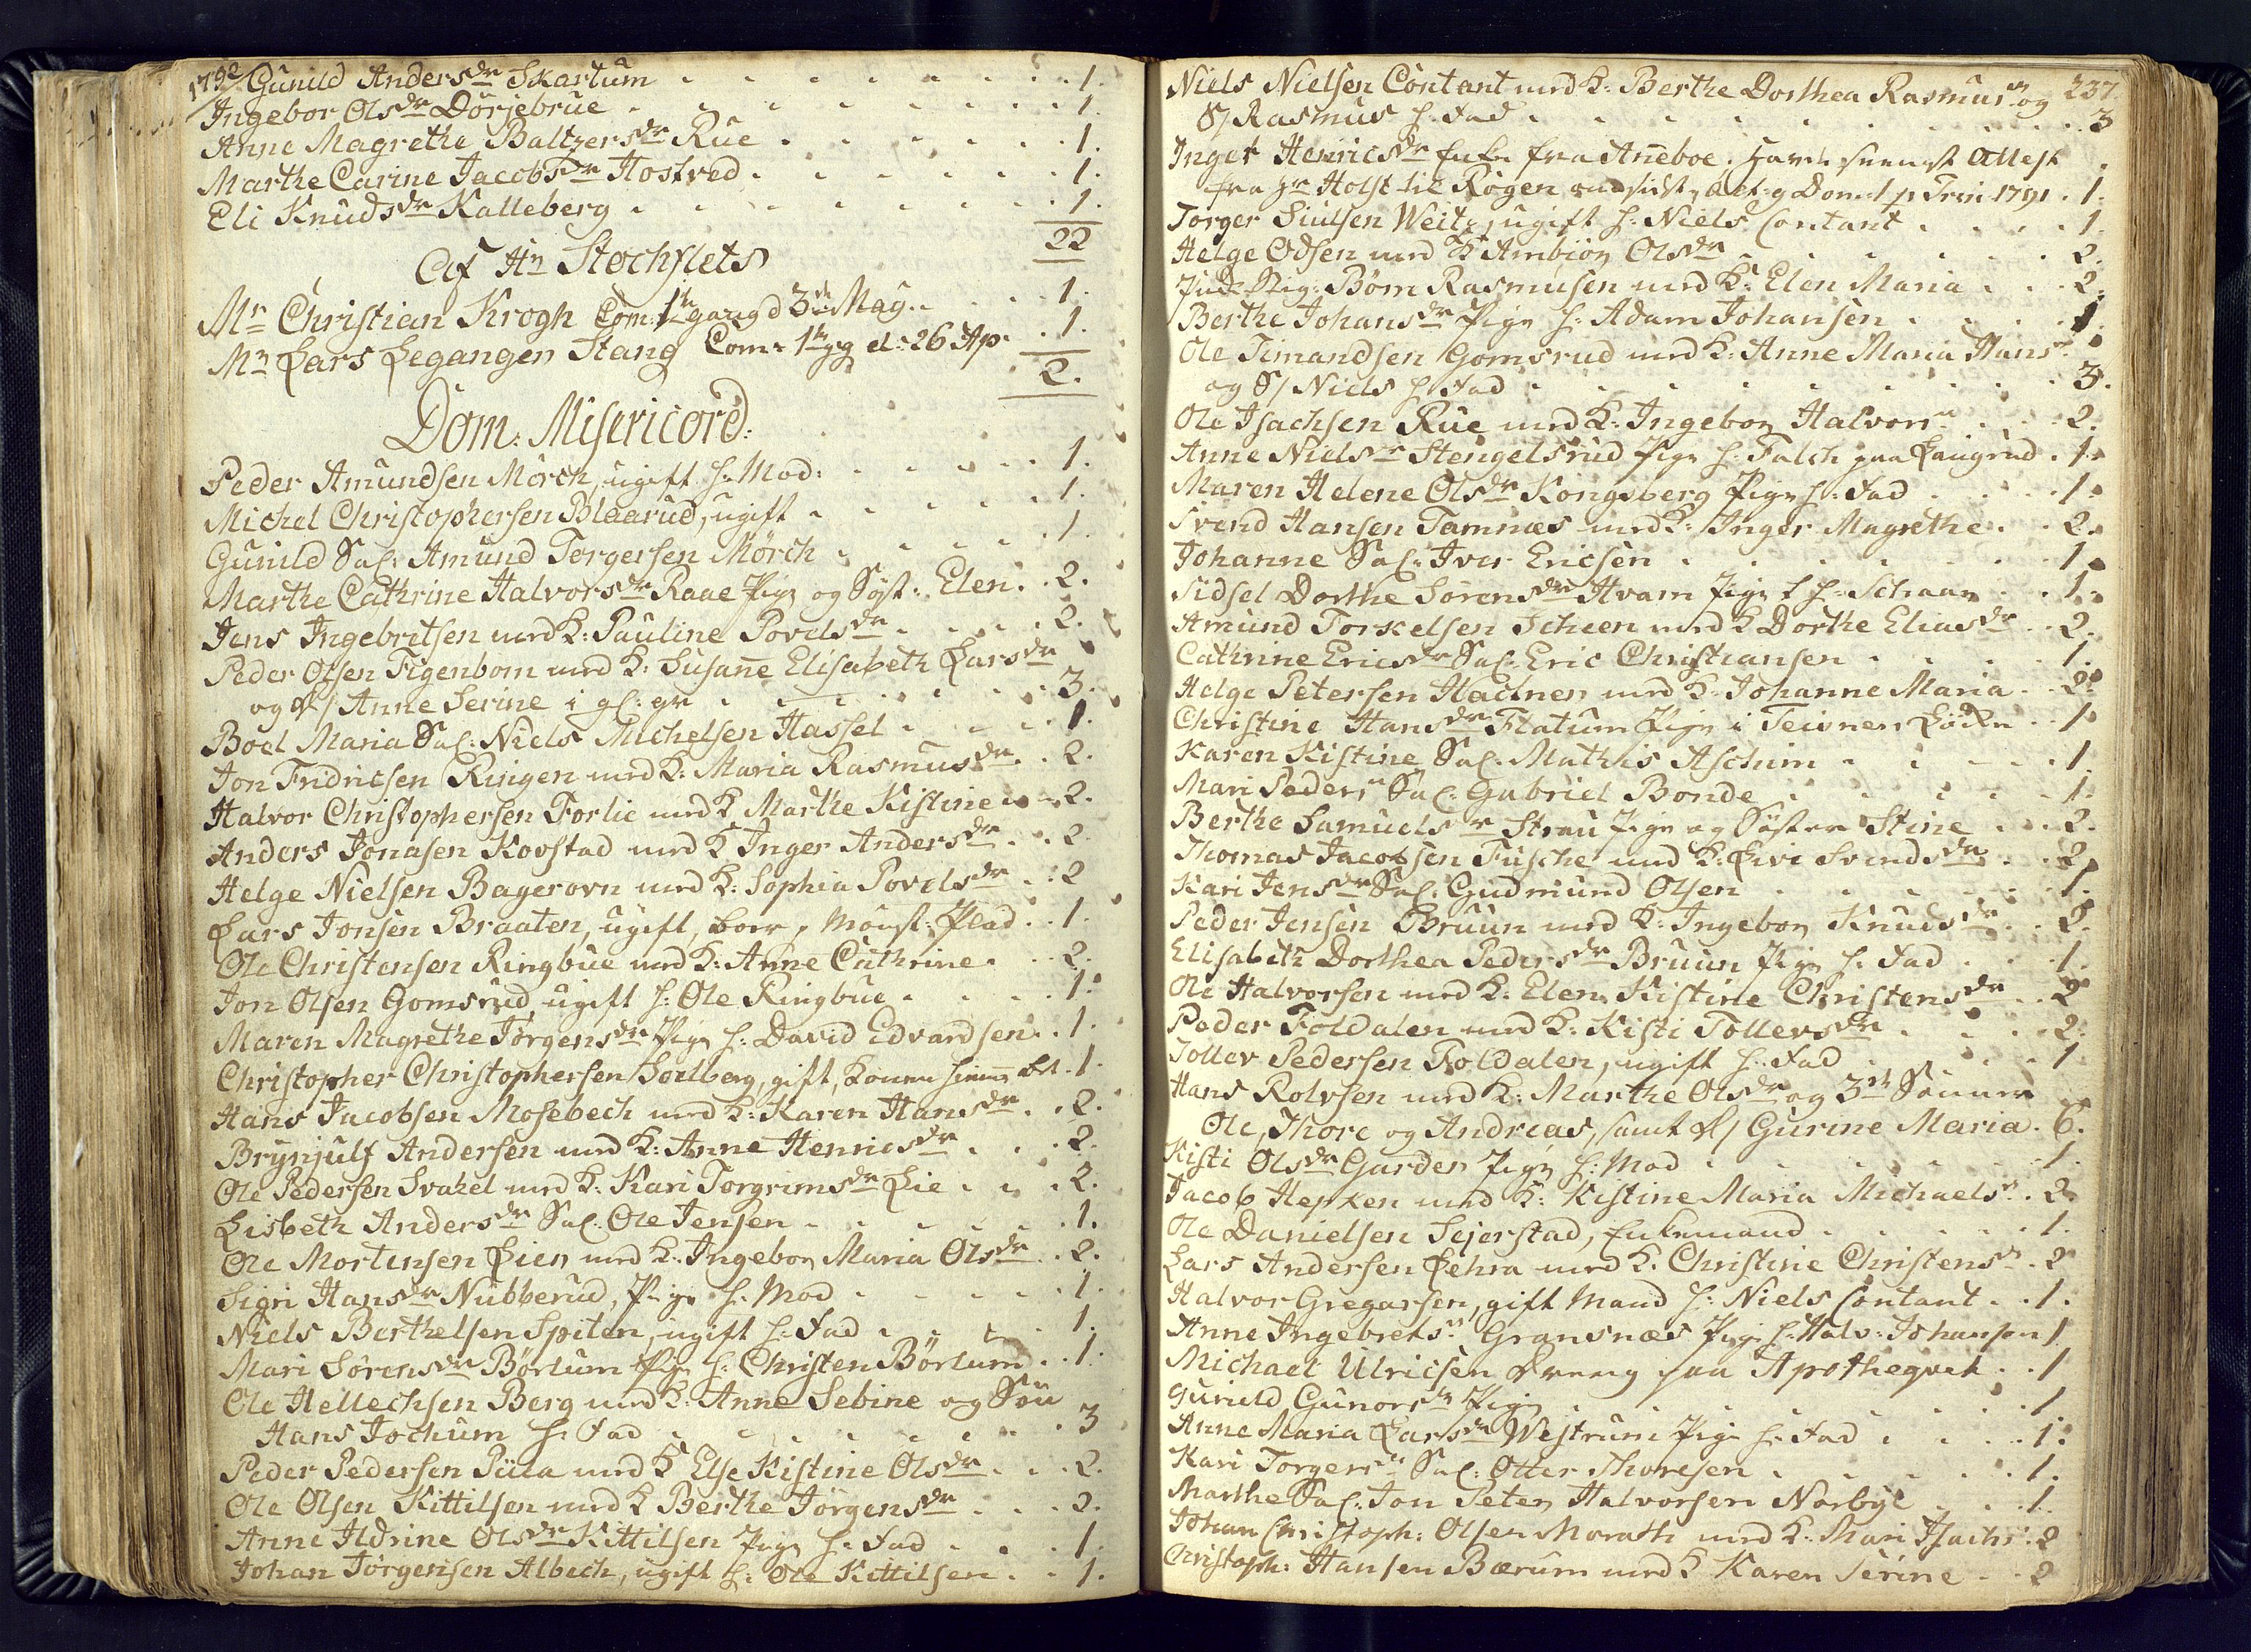 1792. Gunild Andersdr Skartum . . . 1.
Ingebor Olsdr Dörjebrue . . . 1.
Anne Magrethe Baltzersdr Rue . . . 1.
Marthe Carine Jacobsdr Hostved . . . 1.
Eli Knudsdr Kalleberg . . . 1.
22
Af Hr Stochflets
Mr Christian Krogh Com: 1te gang d 3de Mag. . . 1.
Mr Lars Segangen Stang Com: 1te gg d: 26 Ap. . . 1.
2.
Dom: Misericord:
Peder Amundsen Mörch, ugift h: Mod: . . . 1.
Michel Christophersen Blaarud, ugift . . . 1.
Gunild Sal: Amund Torgersen Mörch . . . 1.
Marthe Cathrine Halvorsdr Raae Pige og Syst: Elen. . 2.
Jens Ingebretsen med K: Pauline Povelsdr . . . 2.
Peder Olsen Figenbom med K: Susane Elisabeth Larsdr
og D/ Anne Serine i gl: gr . . . 3.
Boel Maria Sal: Niels Michelsen Hassel . . . 1.
Jon Fridricsen Ringen med K: Maria Rasmusdr . . 2.
Halvor Christophersen Forlie med K Marthe Kistine . . 2.
Anders Jonasen Kovstad med K Inger Andersdr . . 2.
Helge Nielsen Bagerovn med K: Sophia Povelsdr . . 2
Lars Jonsen Braaten, ugift, boer, Mönst: Plad . . 1.
Ole Christensen Ringbue med K: Anne Cathrine . . 2.
Jon Olsen Gomsrud, ugift h: Ole Ringbue . . . 1.
Maren Magrethe Jörgensdr Pige h: David Edvardsen . . 1.
Christopher Christophersen Soelberg, gift, Konen . 1.
Hans Jacobsen Mosebech med K: Karen Hansdr . . 2.
Brynjulf Andersen med K: Anne Henricsdr . . . 2.
Ole Pedersen Svakel med K: Kari Torgrimsdr Lie . . . 2.
Lisbeth Andersdr Sal: Ole Jensen . . . 1.
Ole Mortensen Lien med K: Ingebor Maria Olsdr . . 2.
Sigri Hansdr Nubberud, Pige h: Mod . . . 1.
Niels Berthelsen Spiten, ugift h: Fad . . . 1.
Mari Sörensdr Börtum Pige h: Christen Börtum . . 1.
Ole Hellechsen Berg med K: Anne Sebine og Sön
Hans Jochum h: Fad . . . 3
Peder Pedersen Puta med K Else Kistine Olsdr . . . 2.
Ole Olsen Kittilsen med K Berthe Jörgensdr . . . 2.
Anne Ildrine Olsdr Kittilsen Pige h: Fad . . . 1.
Johan Jörgensen Albech, ugift h: Ole Kittilsen . . 1.
237
Niels Nielsen Contant med K: Berthe Dorthea Rasmusdr og
S/ Rasmus h: Fad . . . 3
Inger Henricsdr Enke fra Aneboe. Havde Attest
fra Hr Holst til Rögen Dom: 1 p Trin: 1791 . 1.
Torger Siulsen Weitz, ugift h: Niels Contant . . . 1.
Helge Odsen med K Ambjör Olsdr . . . 2.
Böm Rasmusen med K: Elen Maria . . . 2.
Berthe Johansdr Pige h: Adam Johansen . . . 1.
Ole Timandsen Gomsrud med K: Anne Maria Hansdr
og S/ Niels h: Fad . . . 3.
Ole Isachsen Rue med K: Ingebor Halvorsdr . . . 2.
Anne Nielsdr Stengelsrud Pige h: Falch paa Laugrud . 1.
Maren Helene Olsdr Kongsberg Pige h: Fad . . . 1.
Svend Hansen Tamnæs med K: Inger Magrethe . . 2.
Johanne Sal: Iver Ericsen . . . 1.
Sidsel Dorthe Sörensdr Hvam Pige h: Schaan . . 1.
Amund Torkelsen Scheen med K Dorthe Eliasdr . . 2.
Cathrine Ericsdr Sal: Eric Christiansen . . . 1.
Helge Petersen Hachner med K: Johanne Maria . . 2.
Christine Hansdr Flatum Pige i Teisner Löchn . . 1.
Karen Kistine Sal: Mathis Aschim . . . 1.
Mari Pedersdr Sal: Gabriel Bonde . . . 1.
Berthe Samuelsdr Strøm Pige og Söster Stine . . . 2.
Thomas Jacobsen Fusche med K: Livi Svendsdr . . . 2.
Kari Jensdr Sal: Gudmund Olsen . . . 1.
Peder Jensen Bruun med K: Ingebor Knudsdr . . 2.
Elisabeth Dorthea Pedersdr Bruun Pige h: Fad . . . 1.
Ole Halvorsen med K: Elen Kistine Christensdr . . 2
Peder Foldalen med K: Kisti Tollevsdr . . . 2.
Tollev Pedersen Foldalen, ugift h: Fad . . . 1
Hans Rolvsen med K: Marthe Olsdr og 3de Sönner
Ole, Thore og Andreas, samt D/ Gurine Maria . 6.
Kisti Olsdr Garder Pige h: Mod . . . 1.
Jacob Hepken med K: Kistine Maria Michaelsdr . 2.
Ole Danielsen Sejerstad, Enkemand . . . 1.
Lars Andersen Lehra med K: Christine Christensdr . 2
Halvor Gregarsen, gift Mand h: Niels Contant . . 1.
Anne Ingebretsdr Gransnæs Pige h: Halv: Johansen 1
Michael Ulricsen Dreng paa Apotheqvet . . 1
Gunild Gunorsdr Pige . . . 1
Anne Maria Larsdr Westrum Pige h: Fad . . . 1.
Kari Torgersdr Sal: Otter Thoresen . . . 1.
Marthe Sal: Jon Peter Halvorsen Norbye . . . 1.
Johan Christoph: Olsen Morath med K: Mari Isachsdr . 2
Christoph: Hansen Bærum med K Karen Serine . . 2